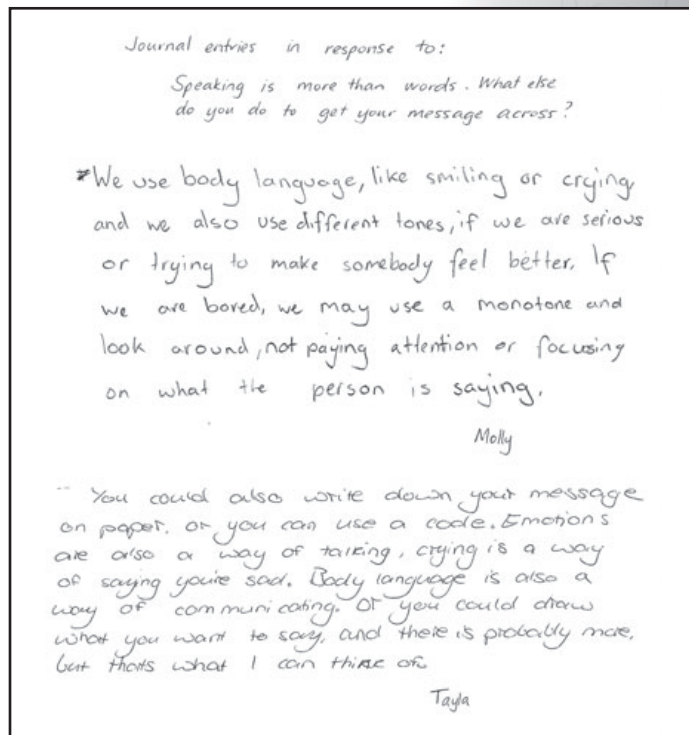 Journal entries in response to:
Speaking is more than words. What else
do you do to get your message across?
We use body language, like smiling or crying
and we also use different tones, if we are serious
or trying to make somebody feel better. If
we are bored, we may use a monotone and
look around, not paying attention or focusing
on what the person is saying.
Molly
You could also write down your message
on paper. or you can use a code. Emotions
are also a way of talking, crying is a way
of saying you're sad. Body language is also a
way of communicating. Or you could draw
what you want to say, and there is probably more,
but thats what I can think of.
Tayla